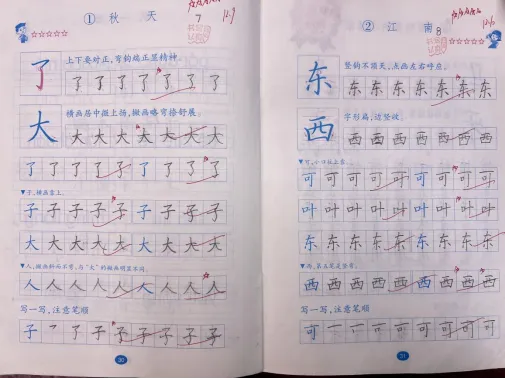 ① 秋 天
7
12.9
了
上下要对正,弯钩端正显精神。
了 了 了 了 了 了 了
大
横画居中微上扬,撇画略弯捺舒展。
大 大 大 大 大 大 大
了 了 了 了 了 了 了 了 了
▼子,横画靠上。
子 子 子 子 子 子 子 子 子
大 大 大 大 大 大 大 大 大
▼人,撇画斜而不弯,与“大”的撇画明显不同。
人 人 人 人 人 人 人 人 人
写一写,注意笔顺
子 子 子 子 子 子
30
② 江 南
8
12.10
东
竖钩不顶天,点画左右呼应。
东 东 东 东 东 东 东
西
字形扁,边竖收。
西 西 西 西 西 西 西
可 可 可 可 可 可 可 可 可
叶 叶 叶 叶 叶 叶 叶 叶 叶
东 东 东 东 东 东 东 东 东
西 西 西 西 西 西 西 西 西
写一写,注意笔顺
可 一 可 可 可 可
31